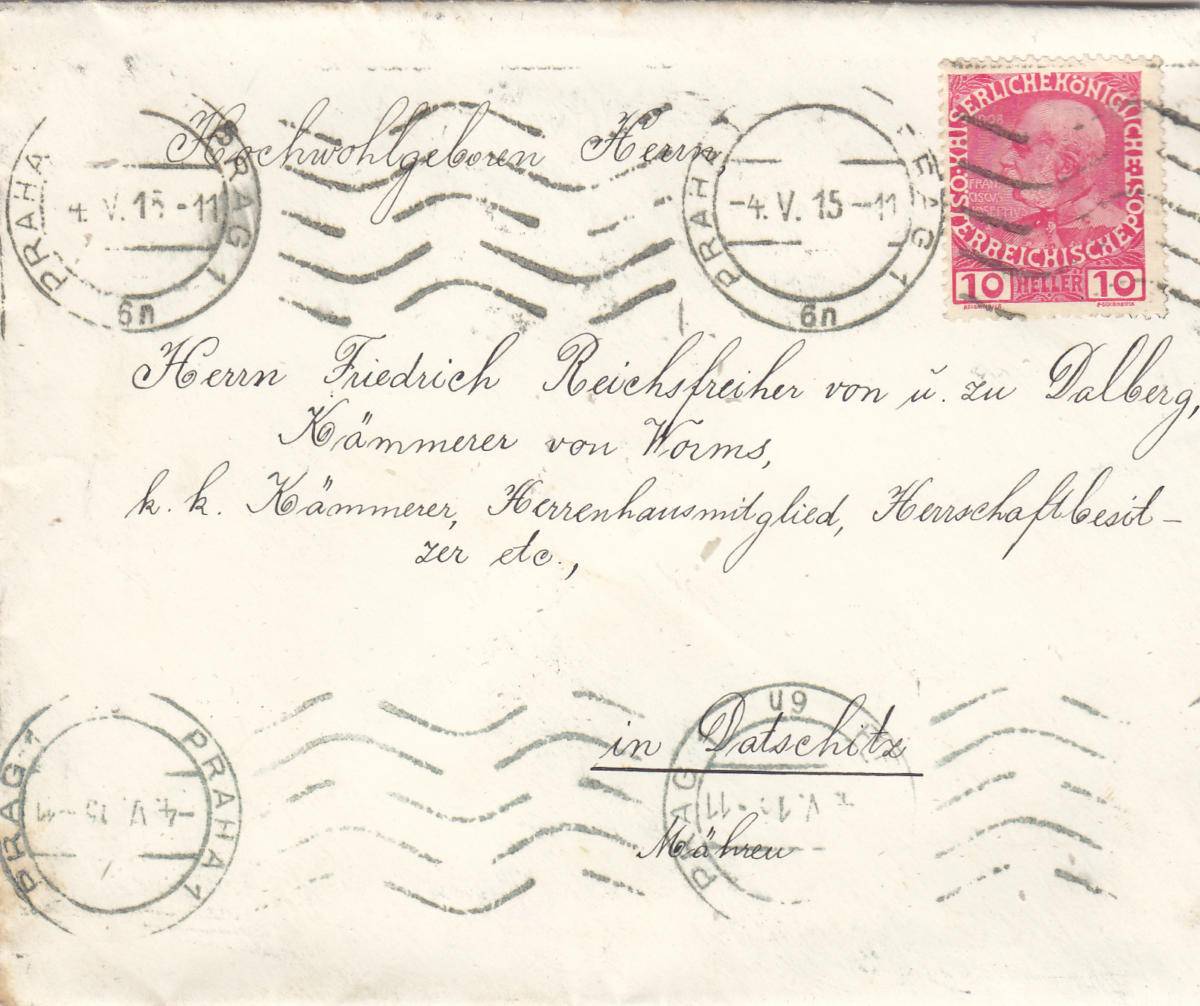 Hochwohlgeboren Herrn,
PRAHA PRAG 1
4. V. 15 -11
6n
PRAHA PRAG 1
-4. V. 15 -11
6n
KAISERLICHE KÖNIGLICHE ÖSTERREICHISCHE
1908
FRAN
CISCVS
IOSEPHVS
10 HELLER 10
Herrn Friedrich Reichsfreiher von u. zu Dalberg,
Kämmerer von Worms,
k. k. Kämmerer, Herrenhausmitglied, Herrschaftbesit-
zer etc.,
in Datschitz
Mähren
PRAG 1 PRAHA 1
-4. V. 15 -11
PRAG
6n
V. 15 -11